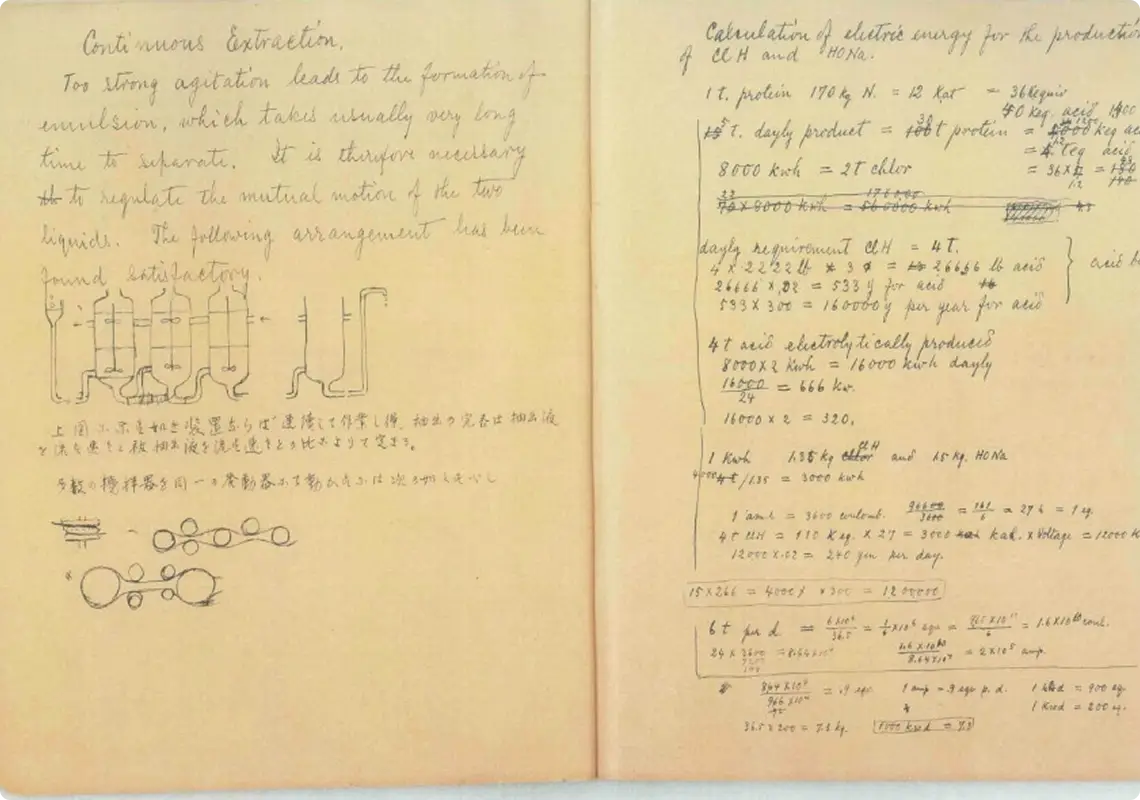 Continuous Extraction.
Too strong agitation leads to the formation of
emulsion, which takes usually very long
time to separate. It is therefore necessary
to regulate the mutual motion of the two
liquids. The following arrangement has been
found satisfactory.
上図に示す如き装置ならば連続して作業し得、抽出の完否は抽出液
の流る速さと被抽出液を流る速さとの比によりて定まる。
多数の攪拌器を同一の発動器にて動かすには次の如くす
Calculation of electric energy for the production
of ClH and HONa.
1 t. protein 170 kg N. = 12 Kat = 36 Kequiv
40 Keq. acid
t. dayly product = t protein = keq acid
= teq acid
8000 kwh = 2t chlor = 36 ×
8000 kwh = 560000 kwh
dayly requirement ClH = 4 t.
4 × 2222 lb × 3 = 26666 lb acid
26666 × .02 = 533 y for acid
533 × 300 = 160000 y per year for acid
4t acid electrolytically produced
8000 × 2 kwh = 16000 kwh dayly
16000/24 = 666 kw.
16000 × 2 = 320.
1 Kwh 1.35 kg ClH and 1.5 kg. HONa
4000/1.35 = 3000 kwh
1 amr = 3600 coulomb. 96600/3600 = 161/6 = 27 h = 1 eq.
4t ClH = 110 Keq. × 27 = 3000 kah. × Voltage = 12000 k
12000 × .02 = 240 yen per day.
15 × 266 = 4000 y × 300 = 1200000
6 t per d. = 6×10⁶/36.5 = 1/6 × 10⁶ eqs = = 1.6×10¹⁰ coul.
24 × 3600 = 8.64×10⁴ = 2×10⁵ amp.
= .9 eqs. 1 amp = .9 eqs p. d. = 900 eq.
1 Kwd = 200 eq.
36.5 × 200 = 7.3 kg. 1000 kwd = 7.3